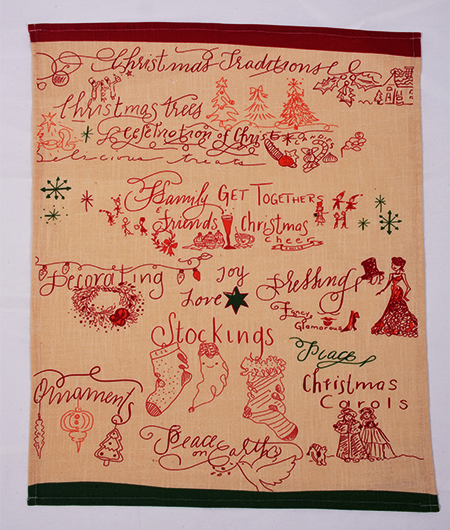 Christmas Traditions
Christmas Trees
Celebration of Christ
Delicious treats
Family Get Together
Friends Christmas
Cheer
Decorating
Joy
Love
Dressing Up
Fancy
Glamorous
Stockings
Peace
Christmas
Carols
Ornaments
Peace
on Earth